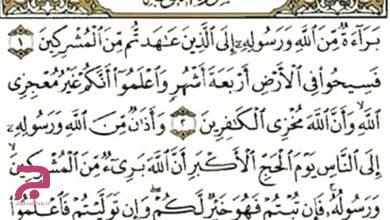 بَرَآءَةٌ مِّنَ ٱللَّهِ وَرَسُولِهِۦٓ إِلَى ٱلَّذِينَ عَٰهَدتُّم مِّنَ ٱلْمُشْرِكِينَ ١
فَسِيحُوا۟ فِى ٱلْأَرْضِ أَرْبَعَةَ أَشْهُرٍ وَٱعْلَمُوٓا۟ أَنَّكُمْ غَيْرُ مُعْجِزِى
ٱللَّهِ وَأَنَّ ٱللَّهَ مُخْزِى ٱلْكَٰفِرِينَ ٢ وَأَذَٰنٌ مِّنَ ٱللَّهِ وَرَسُولِهِۦٓ
إِلَى ٱلنَّاسِ يَوْمَ ٱلْحَجِّ ٱلْأَكْبَرِ أَنَّ ٱللَّهَ بَرِىٓءٌ مِّنَ ٱلْمُشْرِكِينَ
وَرَسُولُهُۥ فَإِن تُبْتُمْ فَهُوَ خَيْرٌ لَّكُمْ وَإِن تَوَلَّيْتُمْ فَٱعْلَمُوٓا۟